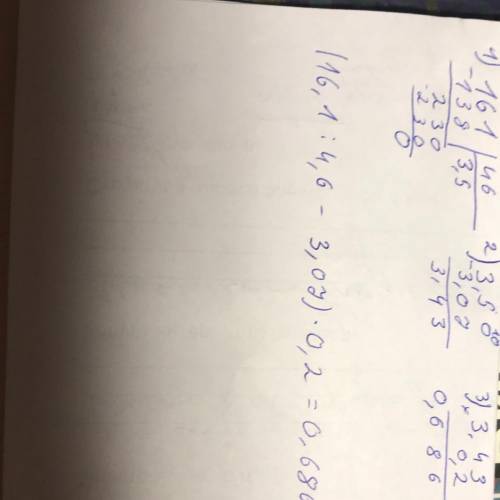 1) 161 | 46 2) 3,50 3) 3,43
-138 | 3,5 -3,07 × 0,2
230 3,43 0,686
-230
0
(16,1 : 4,6 - 3,07) · 0,2 = 0,686